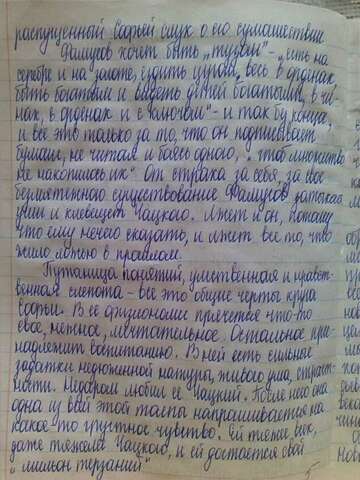 распущенный Софьей слух о его сумасшествии
Фамусов хочет быть „тузом" - „есть на
серебре и на золоте, ездить цугом, весь в орденах
быть богатым и видеть детей богатыми, в чи-
нах, в орденах и с ключом" - и так без конца,
и всё это только за то, что он подписывает
бумаги, не читая и боясь одного, „чтоб множество
не накопилось их". От страха за себя, за своё
безмятежное существование Фамусов затыкает
уши и клевещет Чацкого. Лжет и он, потому
что ему нечего сказать, и лжет всё то, что
жило ложью в прошлом.
Путаница понятий, умственная и нравст-
венная слепота - все это общие черты круга
Софьи. В её физиономии прячется что-то
своё, нежное, мечтательное. Остальное при-
надлежит воспитанию. В ней есть сильные
задатки недюжинной натуры, живого ума, страст-
ности. Недаром любил её Чацкий. После него она
одна из всей этой толпы напрашивается на
какое то грустное чувство. Ей тяжелее всех,
даже тяжелее Чацкого, и ей достается свой
„мильон терзаний"
5